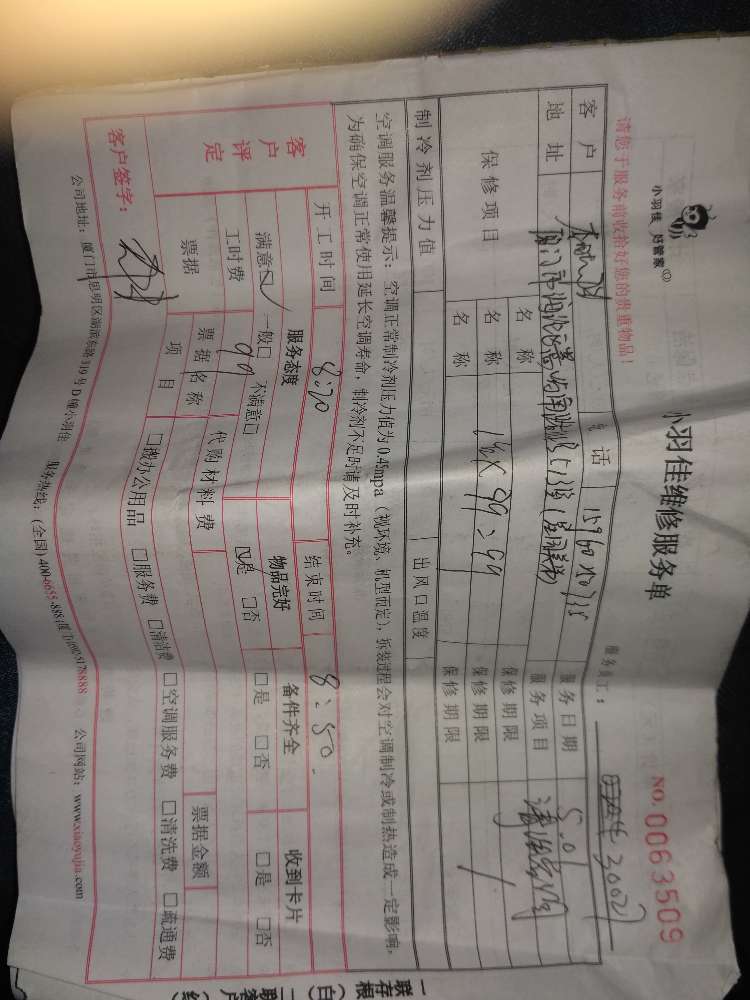 小羽佳 好管家
小羽佳维修服务单
NO. 0063509
请您于服务前收拾好您的贵重物品！
服务员工：
客户 电话 服务日期 5.01
地址 服务项目
保修项目 名称 保修期限
名称 1台×99=99 保修期限
名称 保修期限
制冷剂压力值 出风口温度
空调服务温馨提示：空调正常制冷剂压力值为0.45mpa（视环境、机型而定），拆装过程会对空调制冷或制热造成一定影响，
为确保空调正常使用延长空调寿命，制冷剂不足时请及时补充。
开工时间 8:20 结束时间 8:50.
客户评定 服务态度 物品完好 备件齐全 收到卡片
满意☑ 一般□ 不满意□ ☑是 □否 □是 □否 □是 □否
工时费 99 代购材料费 票据金额
票据 票据名称
项目 □缴办公用品 □服务费 □清洁费 □空调服务费 □清洗费 □疏通费
客户签字：
公司地址：厦门市思明区湖滨东路319号D幢小羽佳 服务热线：（全国）400-6655-888 公司网站：www.xiaoyujia.com
一联存根（白） 二联客户（红